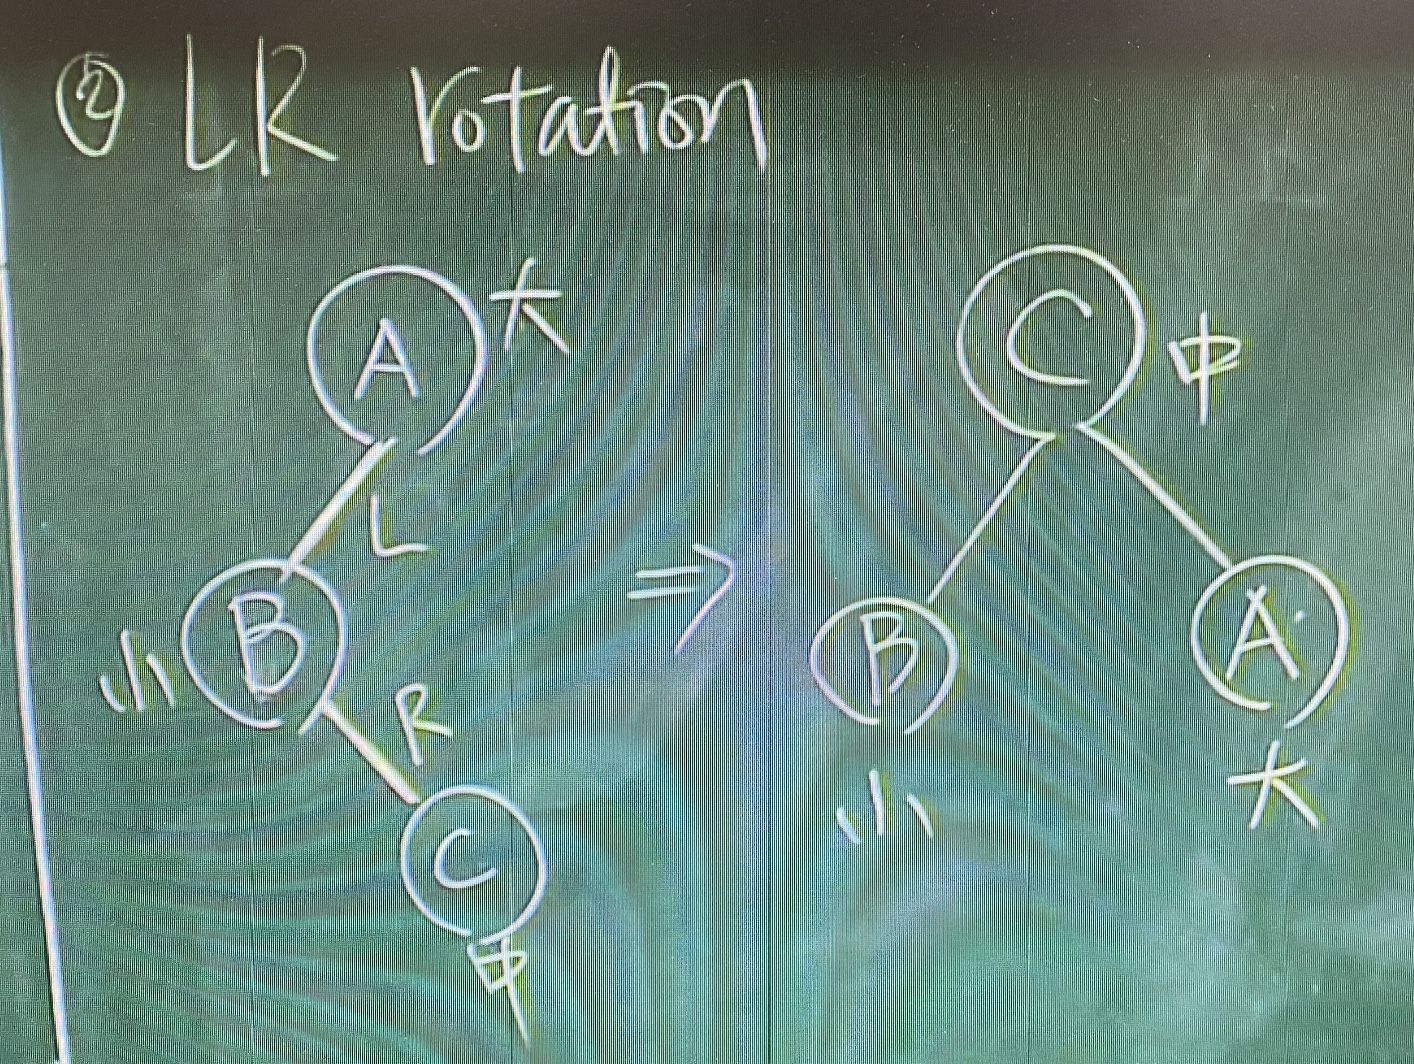 ② LR rotation
A 大
L
小 B
R
C
中
⇒
C 中
B
A
小
大